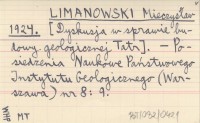 LIMANOWSKI Mieczysław
1924.
[Dyskusja w sprawie bu-
dowy geologicznej Tatr]. — Po-
siedzenia Naukowe Państwowego
Instytutu Geologicznego (War-
szawa) nr 8: 9.
MT